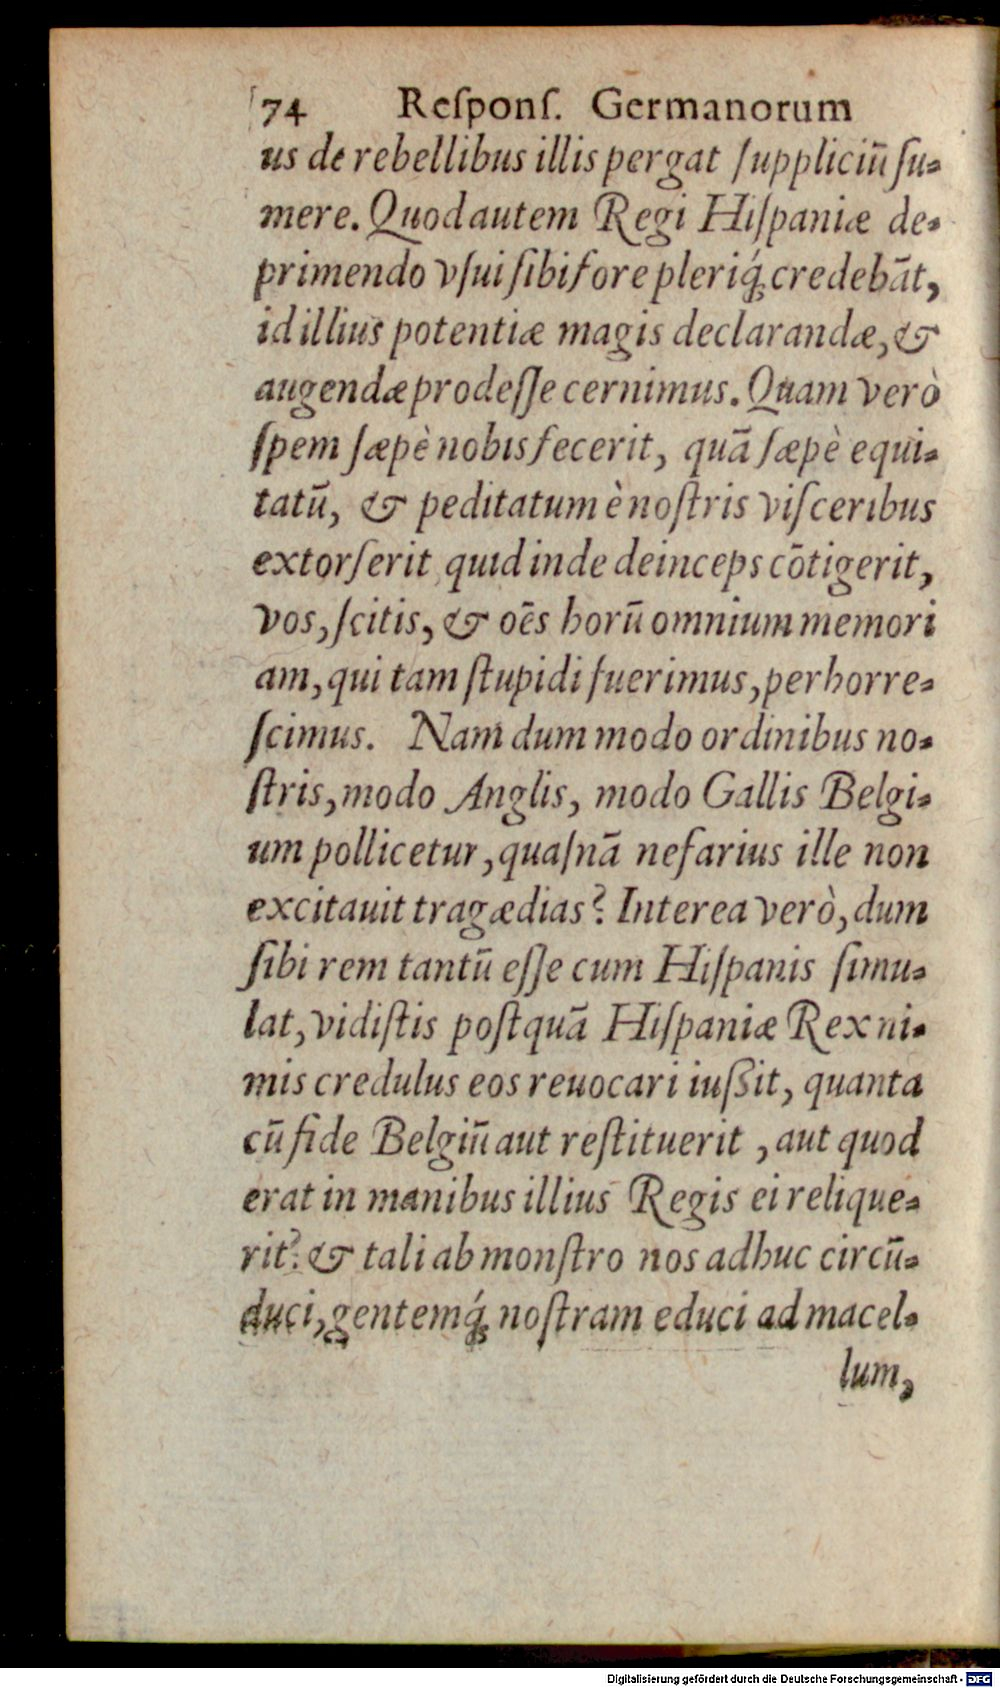 74 Reſponſ. Germanorum
us de rebellibus illis pergat ſuppliciū ſu-
mere. Quod autem Regi Hiſpaniæ de-
primendo vſui ſibi fore pleriq́; credebāt,
id illius potentiæ magis declarandæ, &
augendæ prodeſſe cernimus. Quam verò
ſpem ſæpè nobis fecerit, quā ſæpè equi-
tatū, & peditatum è noſtris viſceribus
extorſerit quid inde deinceps cōtigerit,
vos, ſcitis, & oēs horū omnium memori
am, qui tam ſtupidi fuerimus, perhorre-
ſcimus. Nam dum modo ordinibus no-
ſtris, modo Anglis, modo Gallis Belgi-
um pollicetur, quaſnā nefarius ille non
excitauit tragædias? Interea verò, dum
ſibi rem tantū eſſe cum Hiſpanis ſimu-
lat, vidiſtis poſtquā Hiſpaniæ Rex ni-
mis credulus eos reuocari iuſsit, quanta
cū fide Belgiū aut reſtituerit, aut quod
erat in manibus illius Regis ei relique-
rit? & tali ab monſtro nos adhuc circū-
duci, gentemq́; noſtram educi ad macel-
lum,
Digitalisierung gefördert durch die Deutsche Forschungsgemeinschaft - DFG